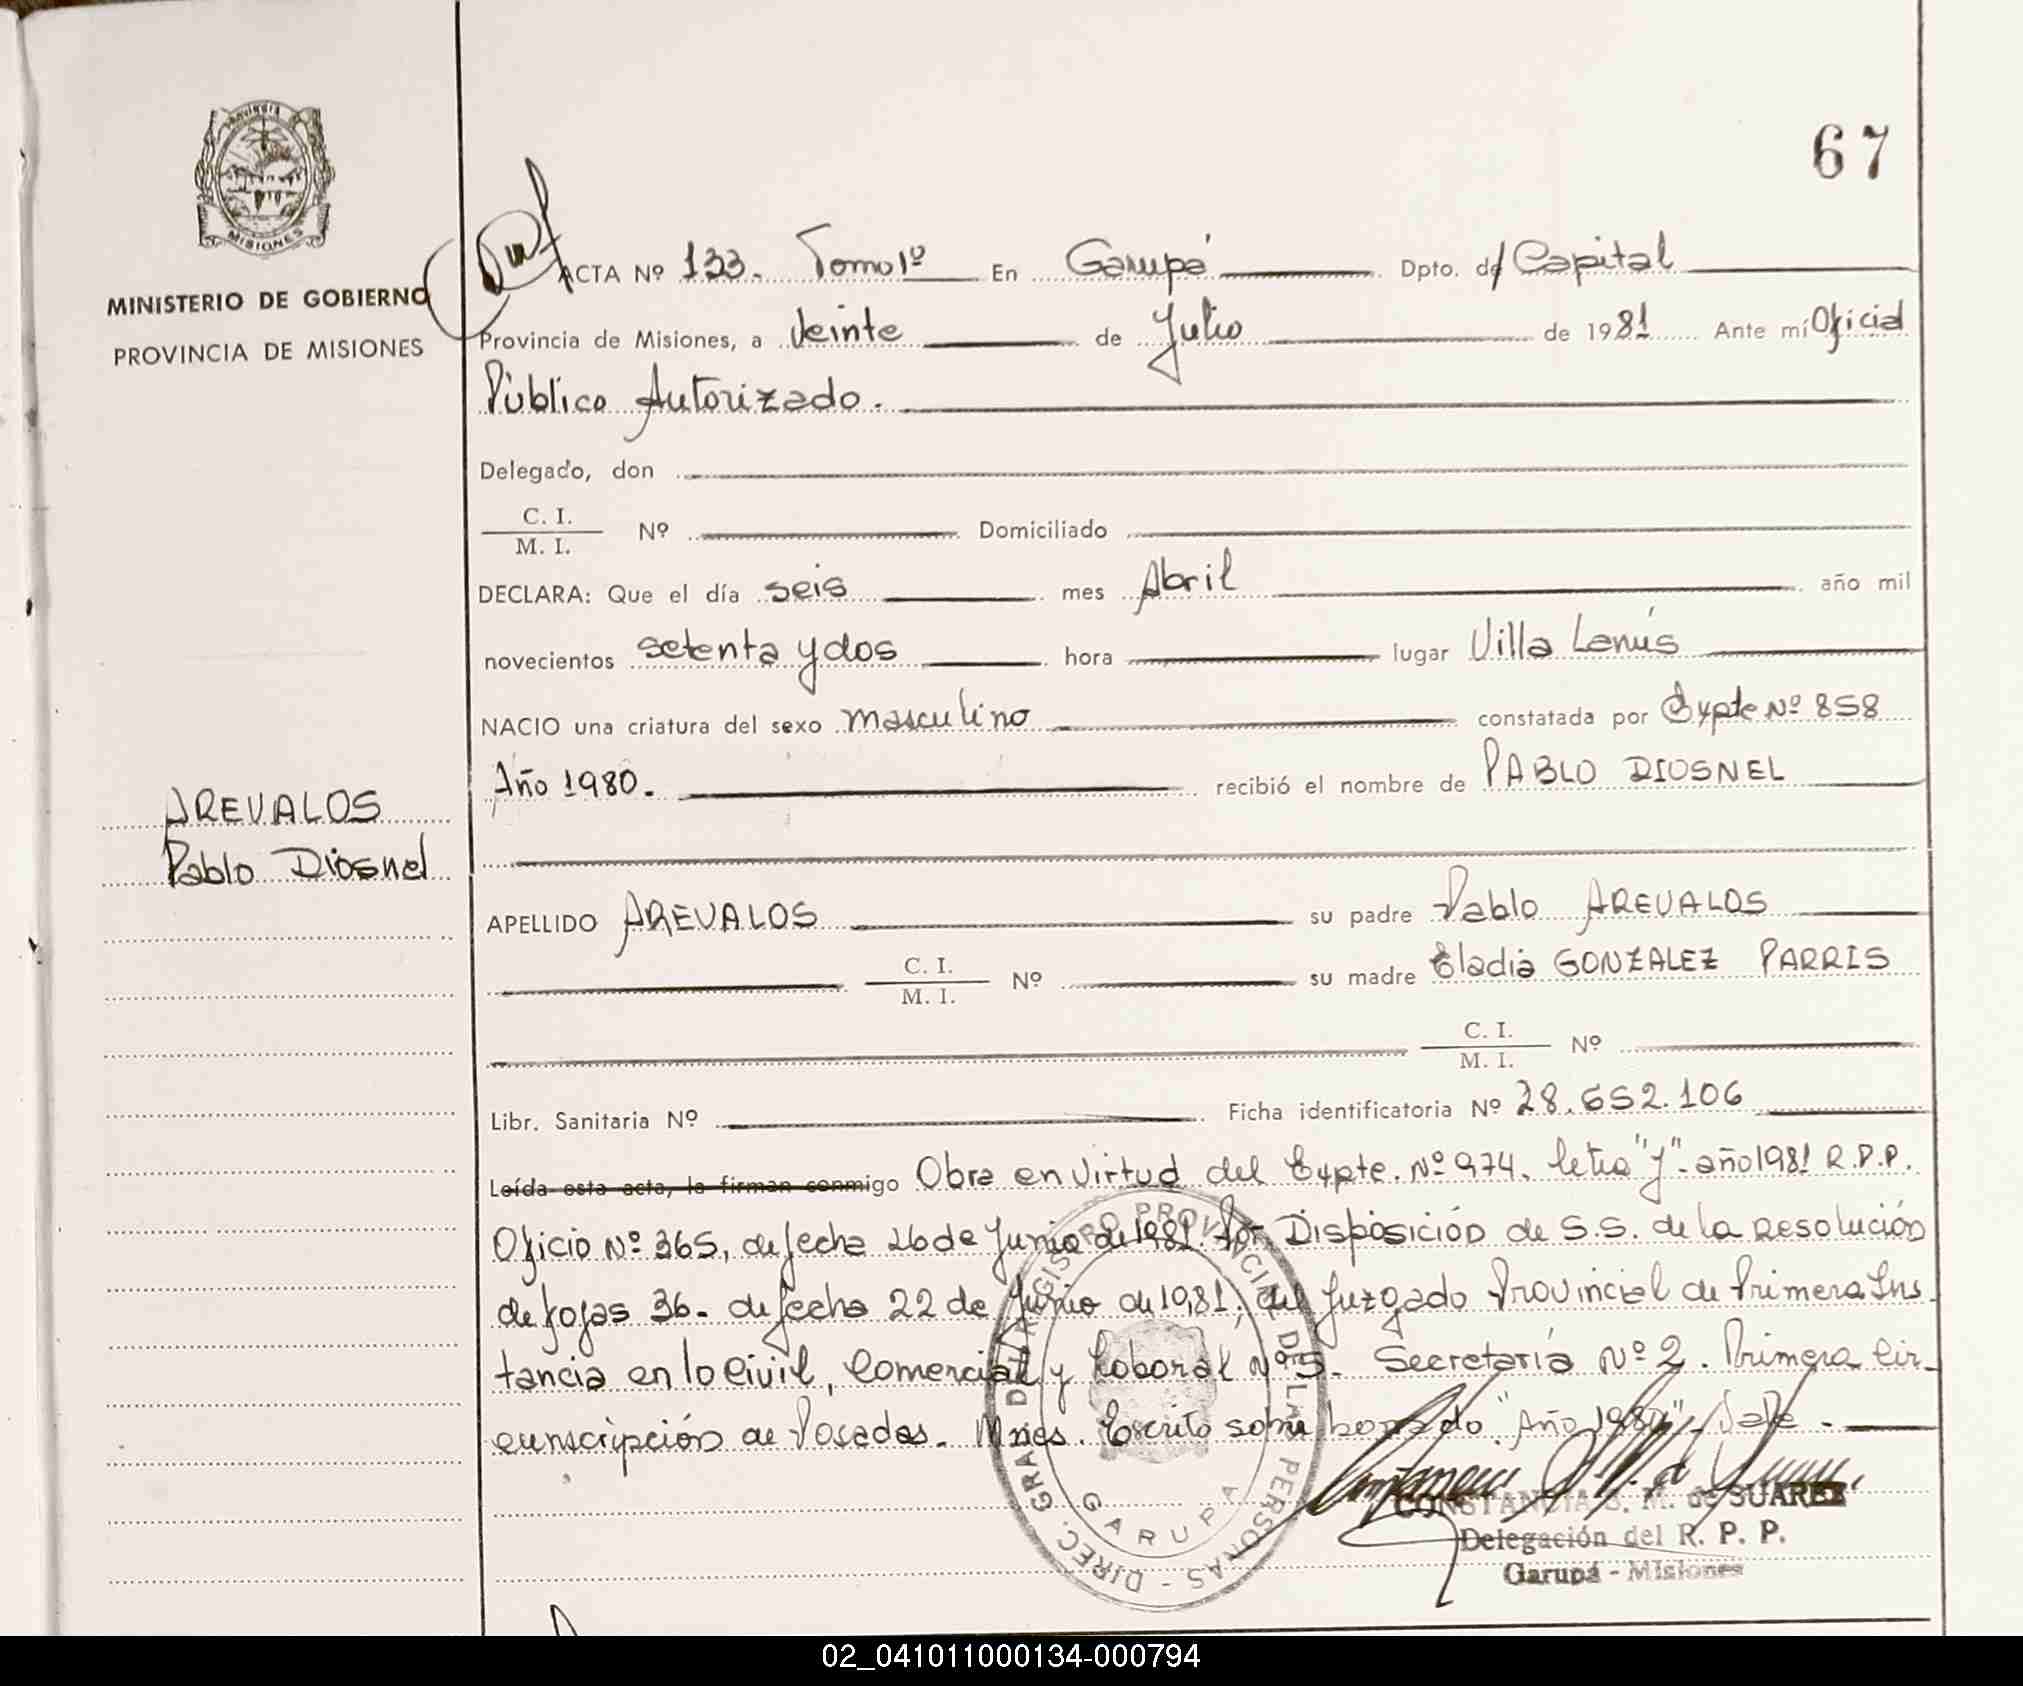 67
PROVINCIA
MISIONES
MINISTERIO DE GOBIERNO
PROVINCIA DE MISIONES
ACTA Nº 133. Tomo 1º En Garupá Dpto. de Capital
Provincia de Misiones, a Veinte de Julio de 1981 Ante mí Oficial
Público Autorizado.
Delegado, don
C. I.
M. I. Nº Domiciliado
DECLARA: Que el día seis mes Abril año mil
novecientos setenta y dos hora lugar Villa Lanús
NACIO una criatura del sexo masculino constatada por Expte Nº 858
Año 1980. recibió el nombre de PABLO DIOSNEL
AREVALOS
Pablo Diosnel
APELLIDO AREVALOS su padre Pablo AREVALOS
C. I.
M. I. Nº su madre Eladia GONZALEZ PARRIS
C. I.
M. I. Nº
Libr. Sanitaria Nº Ficha identificatoria Nº 28.652.106
Leída esta acta, la firman conmigo Obra en virtud del Expte. Nº 974. letra "Y"- año 1981 R.P.P.
Oficio Nº 365, de fecha 26 de Junio de 1981. Por Disposición de S.S. de la Resolución
de fojas 36- de fecha 22 de Junio de 1981, del Juzgado Provincial de Primera Ins-
tancia en lo Civil, Comercial y Laboral Nº 5. Secretaría Nº 2. Primera Cir-
cunscripción de Posadas. Mnes. Escrito sobre borrado "Año 1980", Vale.-
REGISTRO PROVINCIAL DE LAS PERSONAS - DIREC. GRAL. DEL
GARUPA
CONSTANCIA S. M. de SUAREZ
Delegación del R. P. P.
Garupá - Misiones
02_041011000134-000794